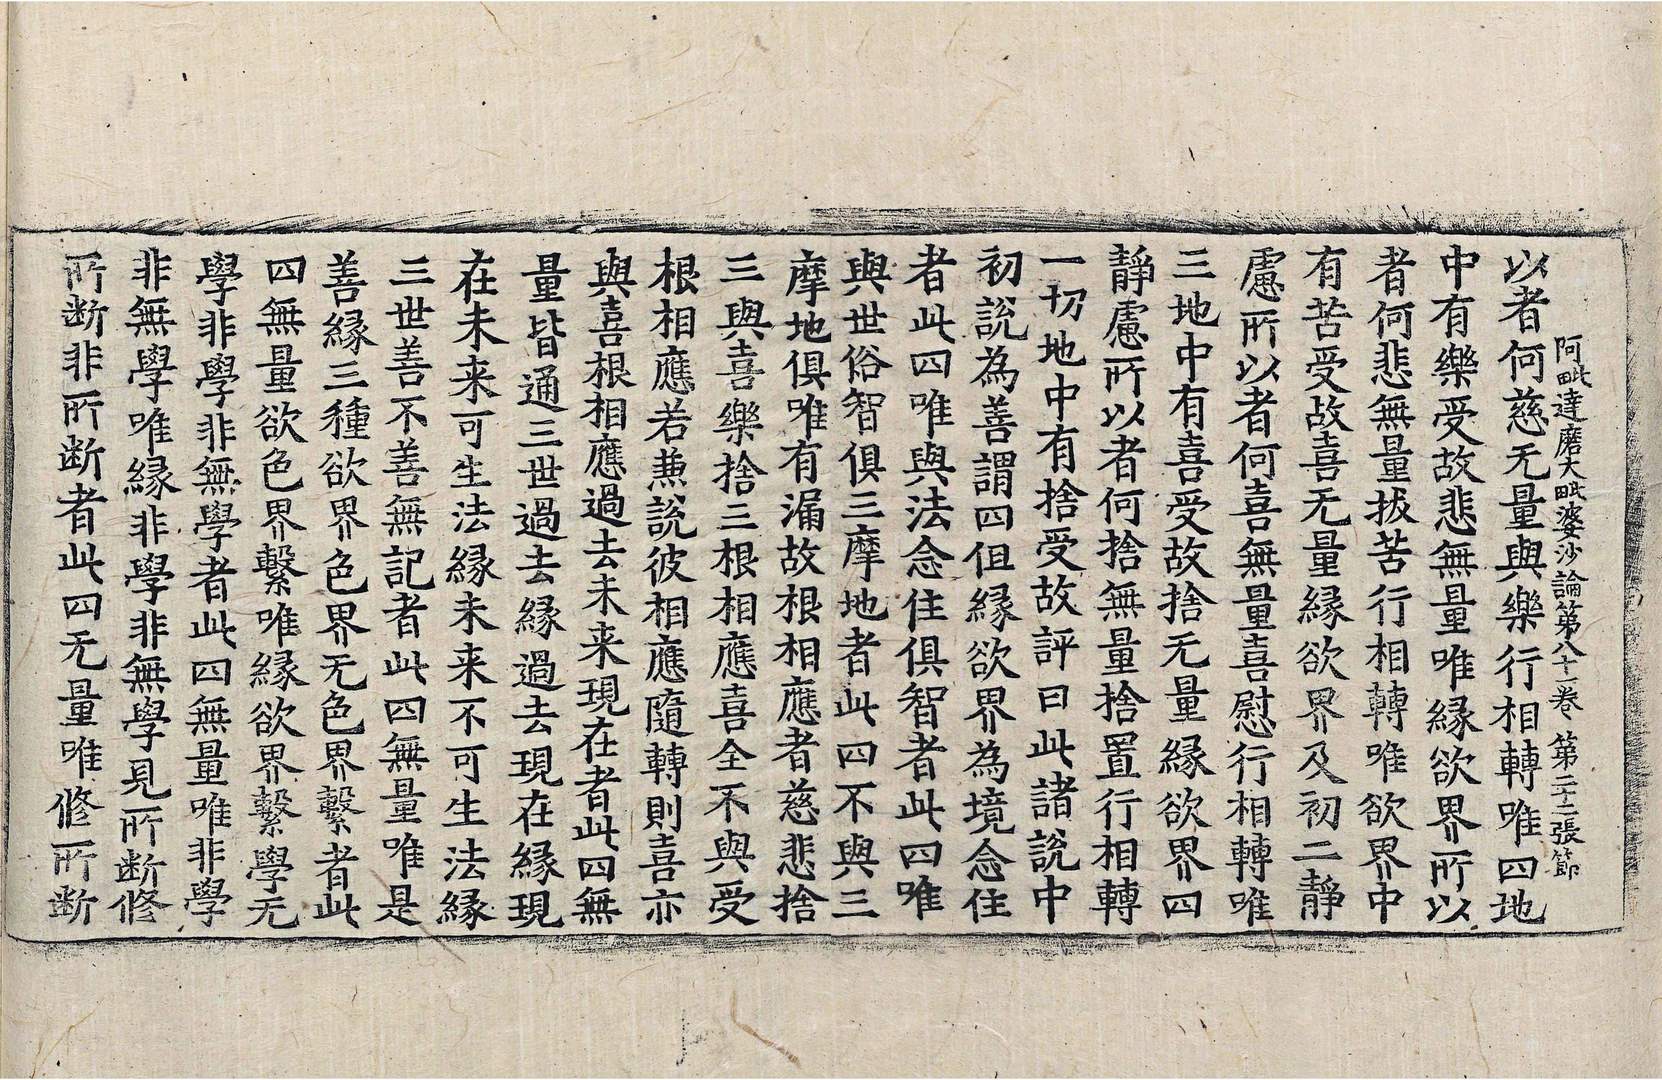 阿毗達磨大毗婆沙論第八十一卷 第二十二張 節
以者何慈无量與樂行相轉唯四地
中有樂受故悲無量唯緣欲界所以
者何悲無量拔苦行相轉唯欲界中
有苦受故喜无量緣欲界及初二靜
慮所以者何喜無量喜慰行相轉唯
三地中有喜受故捨无量緣欲界四
靜慮所以者何捨無量捨置行相轉
一切地中有捨受故評曰此諸說中
初說為善謂四但緣欲界為境念住
者此四唯與法念住俱智者此四唯
與世俗智俱三摩地者此四不與三
摩地俱唯有漏故根相應者慈悲捨
三與喜樂捨三根相應喜全不與受
根相應若兼說彼相應隨轉則喜亦
與喜根相應過去未来現在者此四無
量皆通三世過去緣過去現在緣現
在未来可生法緣未来不可生法緣
三世善不善無記者此四無量唯是
善緣三種欲界色界无色界繫者此
四無量欲色界繫唯緣欲界繫學无
學非學非無學者此四無量唯非學
非無學唯緣非學非無學見所断修
所断非所断者此四无量唯修所断